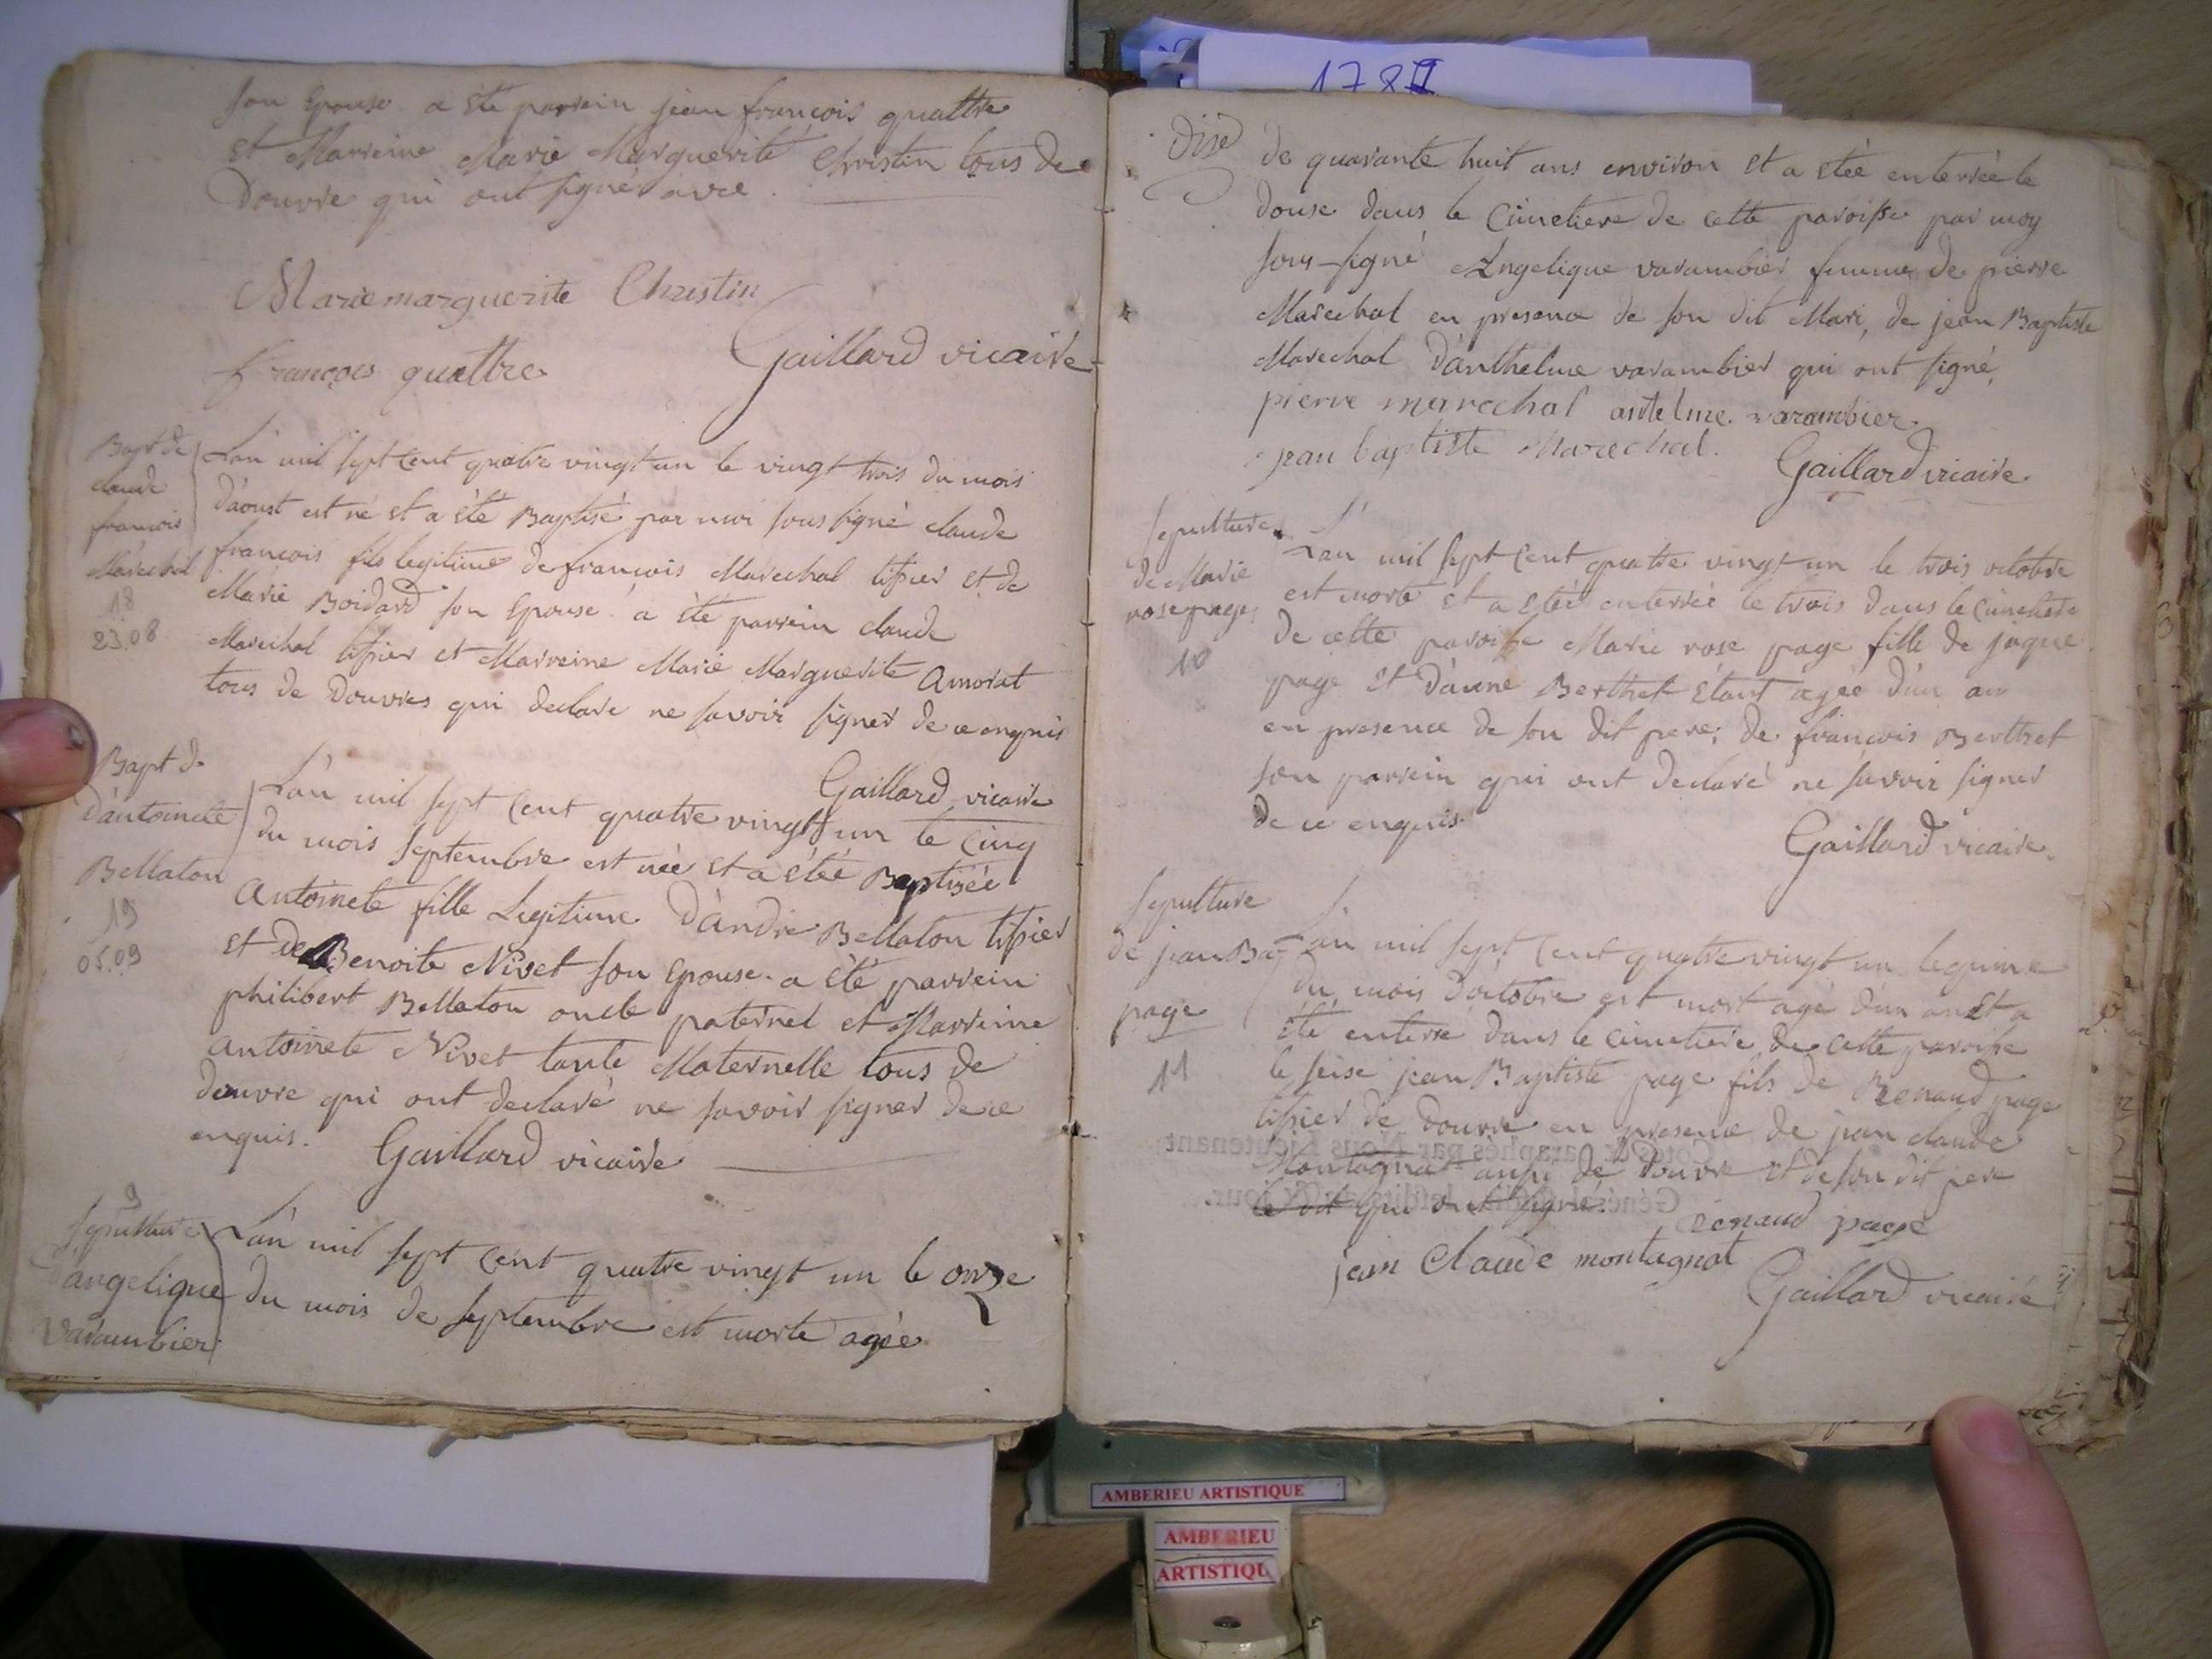 son Epouse a été parrein jean françois quattre
et Marreine Marie Marguerite Christin tous de
Douvre qui ont signé avec
Marie marguerite Christin
françois quattre
Gaillard vicaire
Bapt de
claude
francois
Maréchal
18
23.08
L'an mil sept cent quatre vingt un le vingt trois du mois
d'aoust est né et a été Baptisé par moi sous signé claude
françois fils legitime de françois Marechal tissier et de
Marie Boidard son Epouse a été parrein claude
Marechal tissier et Marreine Marie Marguerite Amorat
tous de Douvres qui declare ne savoir signer de ce enquis
Gaillard vicaire
Bapt de
d'antoinete
Bellaton
19
05.09
L'an mil sept cent quatre vingt un le cinq
du mois septembre est née et a étée Baptisée
Antoinete fille Legitime d'andre Bellaton tissier
et de Benoite Nivet son Epouse a été parrein
philibert Bellaton oncle paternel et Marreine
antoinete Nivet tante Maternelle tous de
douvre qui ont declaré ne savoir signer de ce
enquis.
Gaillard vicaire
9
sepulture
d'angelique
varambier
L'an mil sept cent quatre vingt un le onze
du mois de septembre est morte agée
1781
Dise
de quarante huit ans environ et a étée enterrée le
douse dans le Cimetiere de cette paroisse par moy
sous-signé Angelique varambier femme de pierre
Marechal en presence de son dit Mari, de jean Baptiste
Marechal d'anthelme varambier qui ont signé
pierre marechal antelme varambier
jean baptiste Marechal.
Gaillard vicaire
sepulture
de Marie
rose page
10
L'an mil sept cent quatre vingt un le trois octobre
est morte et a étée enterrée le trois dans le cimetiere
de cette paroisse Marie rose page fille de jaque
page et d'anne Berthet étant agée d'un an
en presence de son dit pere, de françois Berthet
son parrein qui ont declaré ne savoir signer
de ce enquis
Gaillard vicaire
sepulture
de jean Bap
page
11
L'an mil sept cent quatre vingt un le quinze
du mois d'octobre est mort agé d'un an et a
été enterré dans le cimetiere de cette paroisse
le seise jean Baptiste page fils de Renaud page
tissier de Douvre en presence de jean claude
Montagnat aussi de Douvre et de son dit pere
le dit qui ont signé.
renaud page
jean Claude montagnat
Gaillard vicaire
AMBERIEU ARTISTIQUE
AMBERIEU
ARTISTIQU